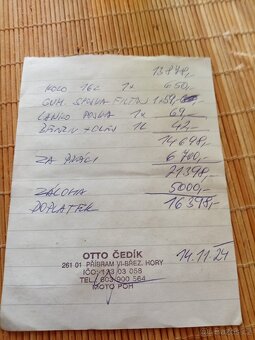 13848,-
KOLO 16Z 1x 650,-
GUM. SPOJKA FILTRU 1x 50,-
LANKO 1x 69,-
BENZIN + OLEJ 1L 42,-
14698,-
ZA PRÁCI 6700,-
21398,-
ZÁLOHA 5000,-
DOPLATEK 16398,-
OTTO ČEDÍK
261 01 PŘÍBRAM VI-BŘEZ. HORY
IČO: 123 03 058
TEL. 603 900 564
MOTO POH
14.11.24